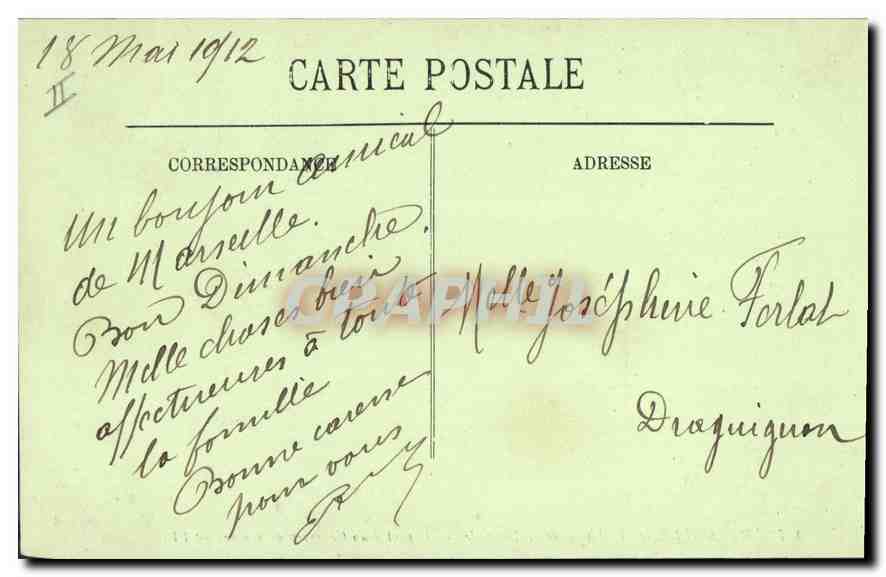 18 Mai 1912
II
CARTE POSTALE
CORRESPONDANCE
ADRESSE
Un bonjour amical
de Marseille.
Bon Dimanche.
Mille choses bien
affectueuses à toute
la famille
Bonne caresse
pour vous
Melle Joséphine Ferlat
Draguignan
CPARAMA